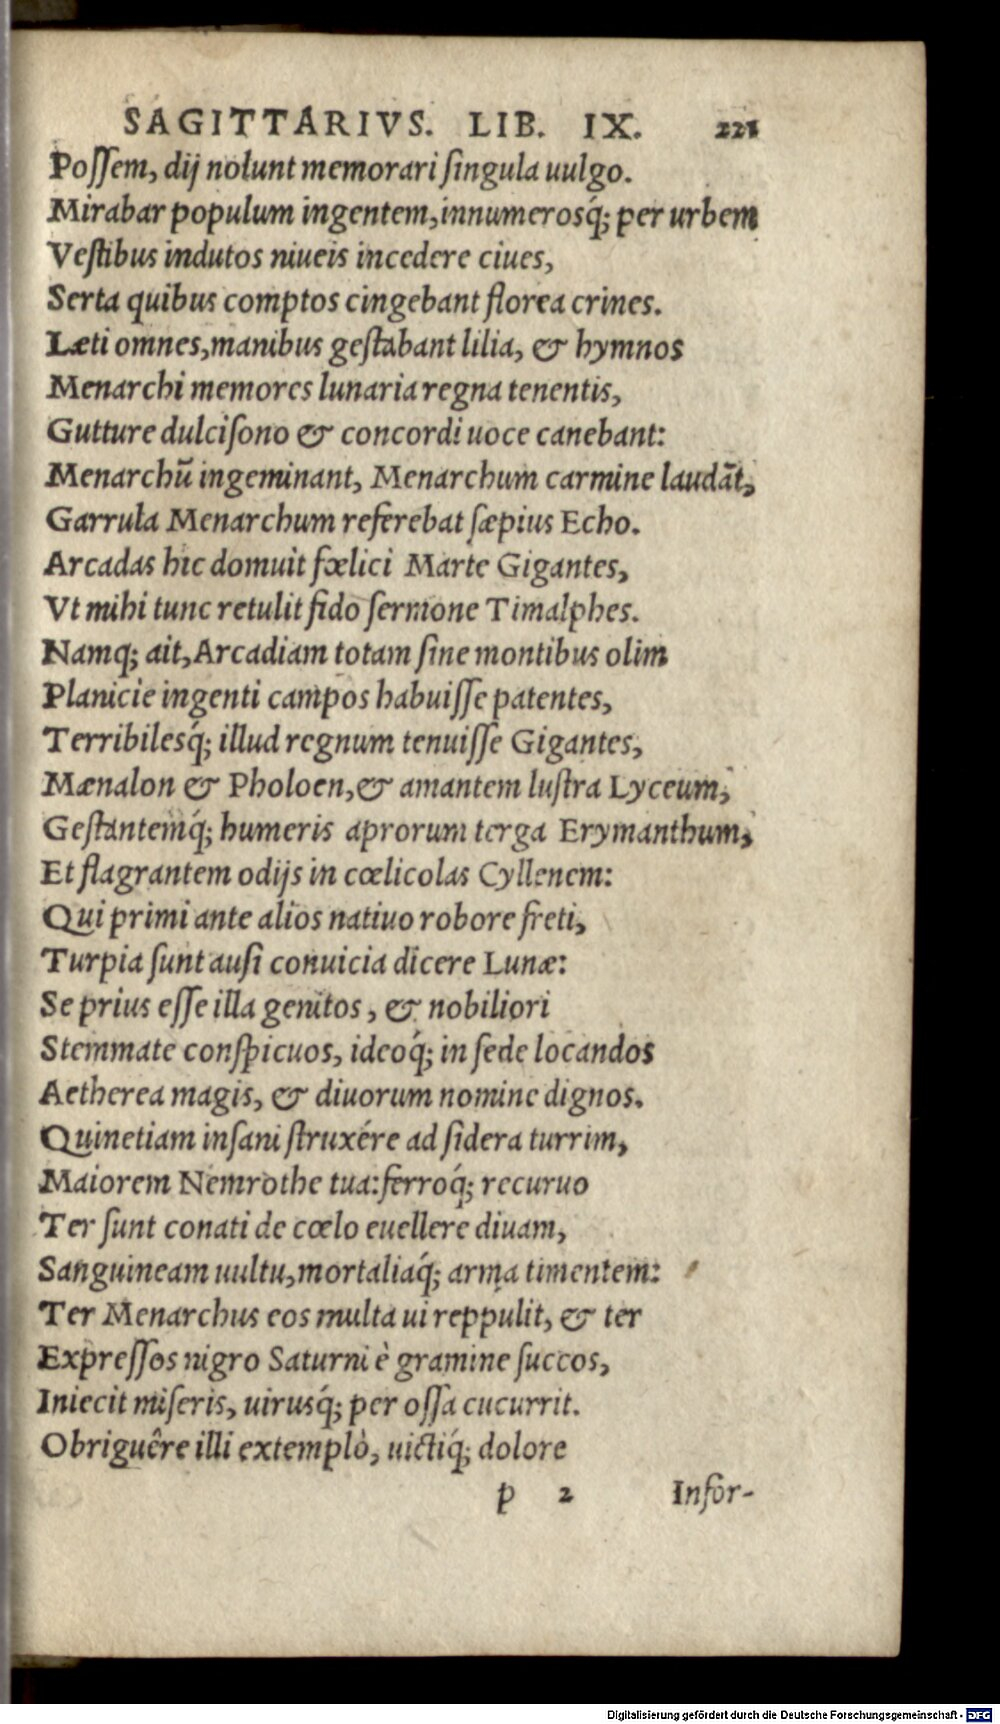 SAGITTARIVS. LIB. IX. 221
Poſſem, dij nolunt memorari ſingula uulgo.
Mirabar populum ingentem, innumerosq́; per urbem
Veſtibus indutos niueis incedere ciues,
Serta quibus comptos cingebant florea crines.
Læti omnes, manibus geſtabant lilia, & hymnos
Menarchi memores lunaria regna tenentis,
Gutture dulciſono & concordi uoce canebant:
Menarchū ingeminant, Menarchum carmine laudāt,
Garrula Menarchum referebat ſæpius Echo.
Arcadas hic domuit fœlici Marte Gigantes,
Vt mihi tunc retulit fido ſermone Timalphes.
Namq; ait, Arcadiam totam ſine montibus olim
Planicie ingenti campos habuiſſe patentes,
Terribilesq́; illud regnum tenuiſſe Gigantes,
Mænalon & Pholoen, & amantem luſtra Lyceum,
Geſtantemq́; humeris aprorum terga Erymanthum,
Et flagrantem odijs in cœlicolas Cyllenem:
Qui primi ante alios natiuo robore freti,
Turpia ſunt auſi conuicia dicere Lunæ:
Se prius eſſe illa genitos, & nobiliori
Stemmate conſpicuos, ideoq́; in ſede locandos
Aetherea magis, & diuorum nomine dignos.
Quinetiam inſani ſtruxére ad ſidera turrim,
Maiorem Nemrothe tua: ferroq́; recuruo
Ter ſunt conati de cœlo euellere diuam,
Sanguineam uultu, mortaliaq́; arma timentem:
Ter Menarchus eos multa ui reppulit, & ter
Expreſſos nigro Saturni è gramine ſuccos,
Iniecit miſeris, uirusq́; per oſſa cucurrit.
Obriguêre illi extemplò, uictiq́; dolore
p 2 Infor-
Digitalisierung gefördert durch die Deutsche Forschungsgemeinschaft - DFG